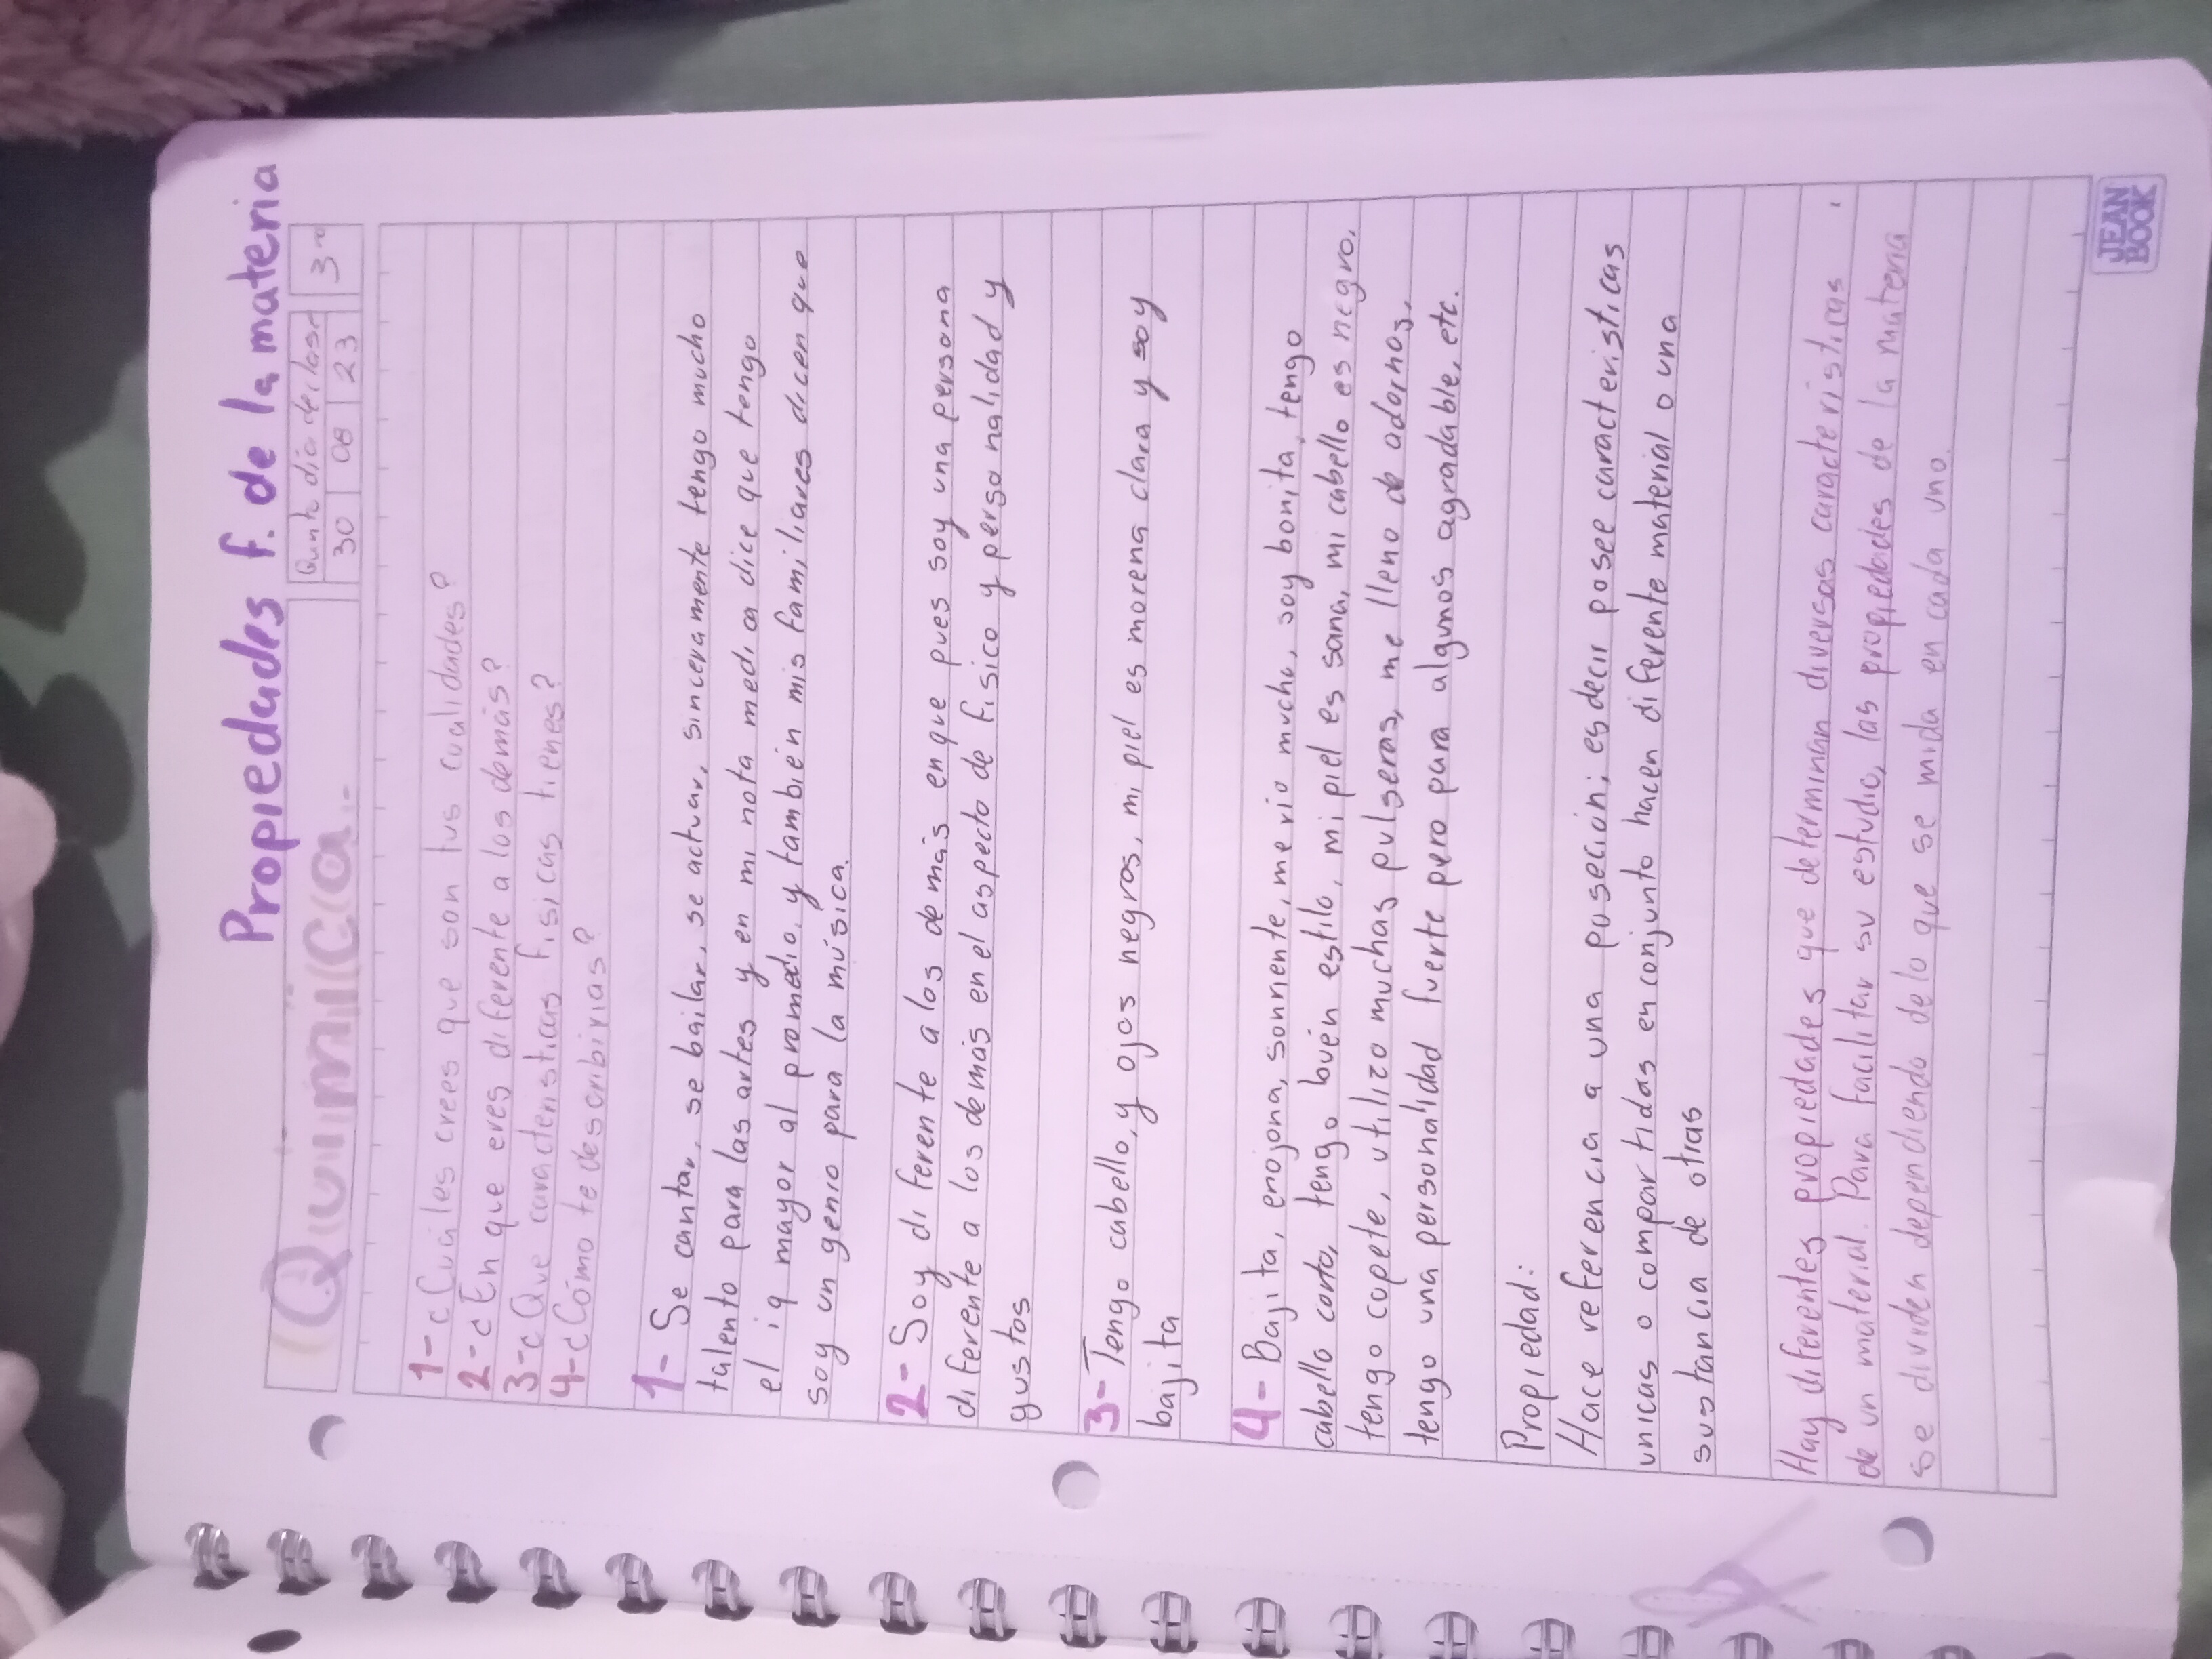 Propiedades f. de la materia
Quinto dia de clase
Química.
30 08 23
3
1- ¿Cuáles crees que son tus cualidades?
2- ¿En que eres diferente a los demás?
3- ¿Que caracteristicas fisicas tienes?
4- ¿Cómo te describirias?
1- Se cantar, se bailar, se actuar, sinceramente tengo mucho
talento para las artes y en mi nota media dice que tengo
el iq mayor al promedio, y también mis familiares dicen que
soy un genio para la música.
2- Soy diferente a los demás en que pues soy una persona
diferente a los demás en el aspecto de fisico y personalidad y
gustos
3- Tengo cabello, y ojos negros, mi piel es morena clara y soy
bajita
4- Bajita, enojona, sonriente, me rio mucho, soy bonita, tengo
cabello corto, tengo buen estilo, mi piel es sana, mi cabello es negro,
tengo copete, utilizo muchas pulseras, me lleno de adornos,
tengo una personalidad fuerte pero para algunos agradable, etc.
Propiedad:
Hace referencia a una poseción; es decir posee caracteristicas
unicas o compartidas en conjunto hacen diferente material o una
sustancia de otras
Hay diferentes propiedades que determinan diversas caracteristicas
de un material. Para facilitar su estudio, las propiedades de la materia
se dividen dependiendo delo que se mida en cada uno.
JEAN
BOOK